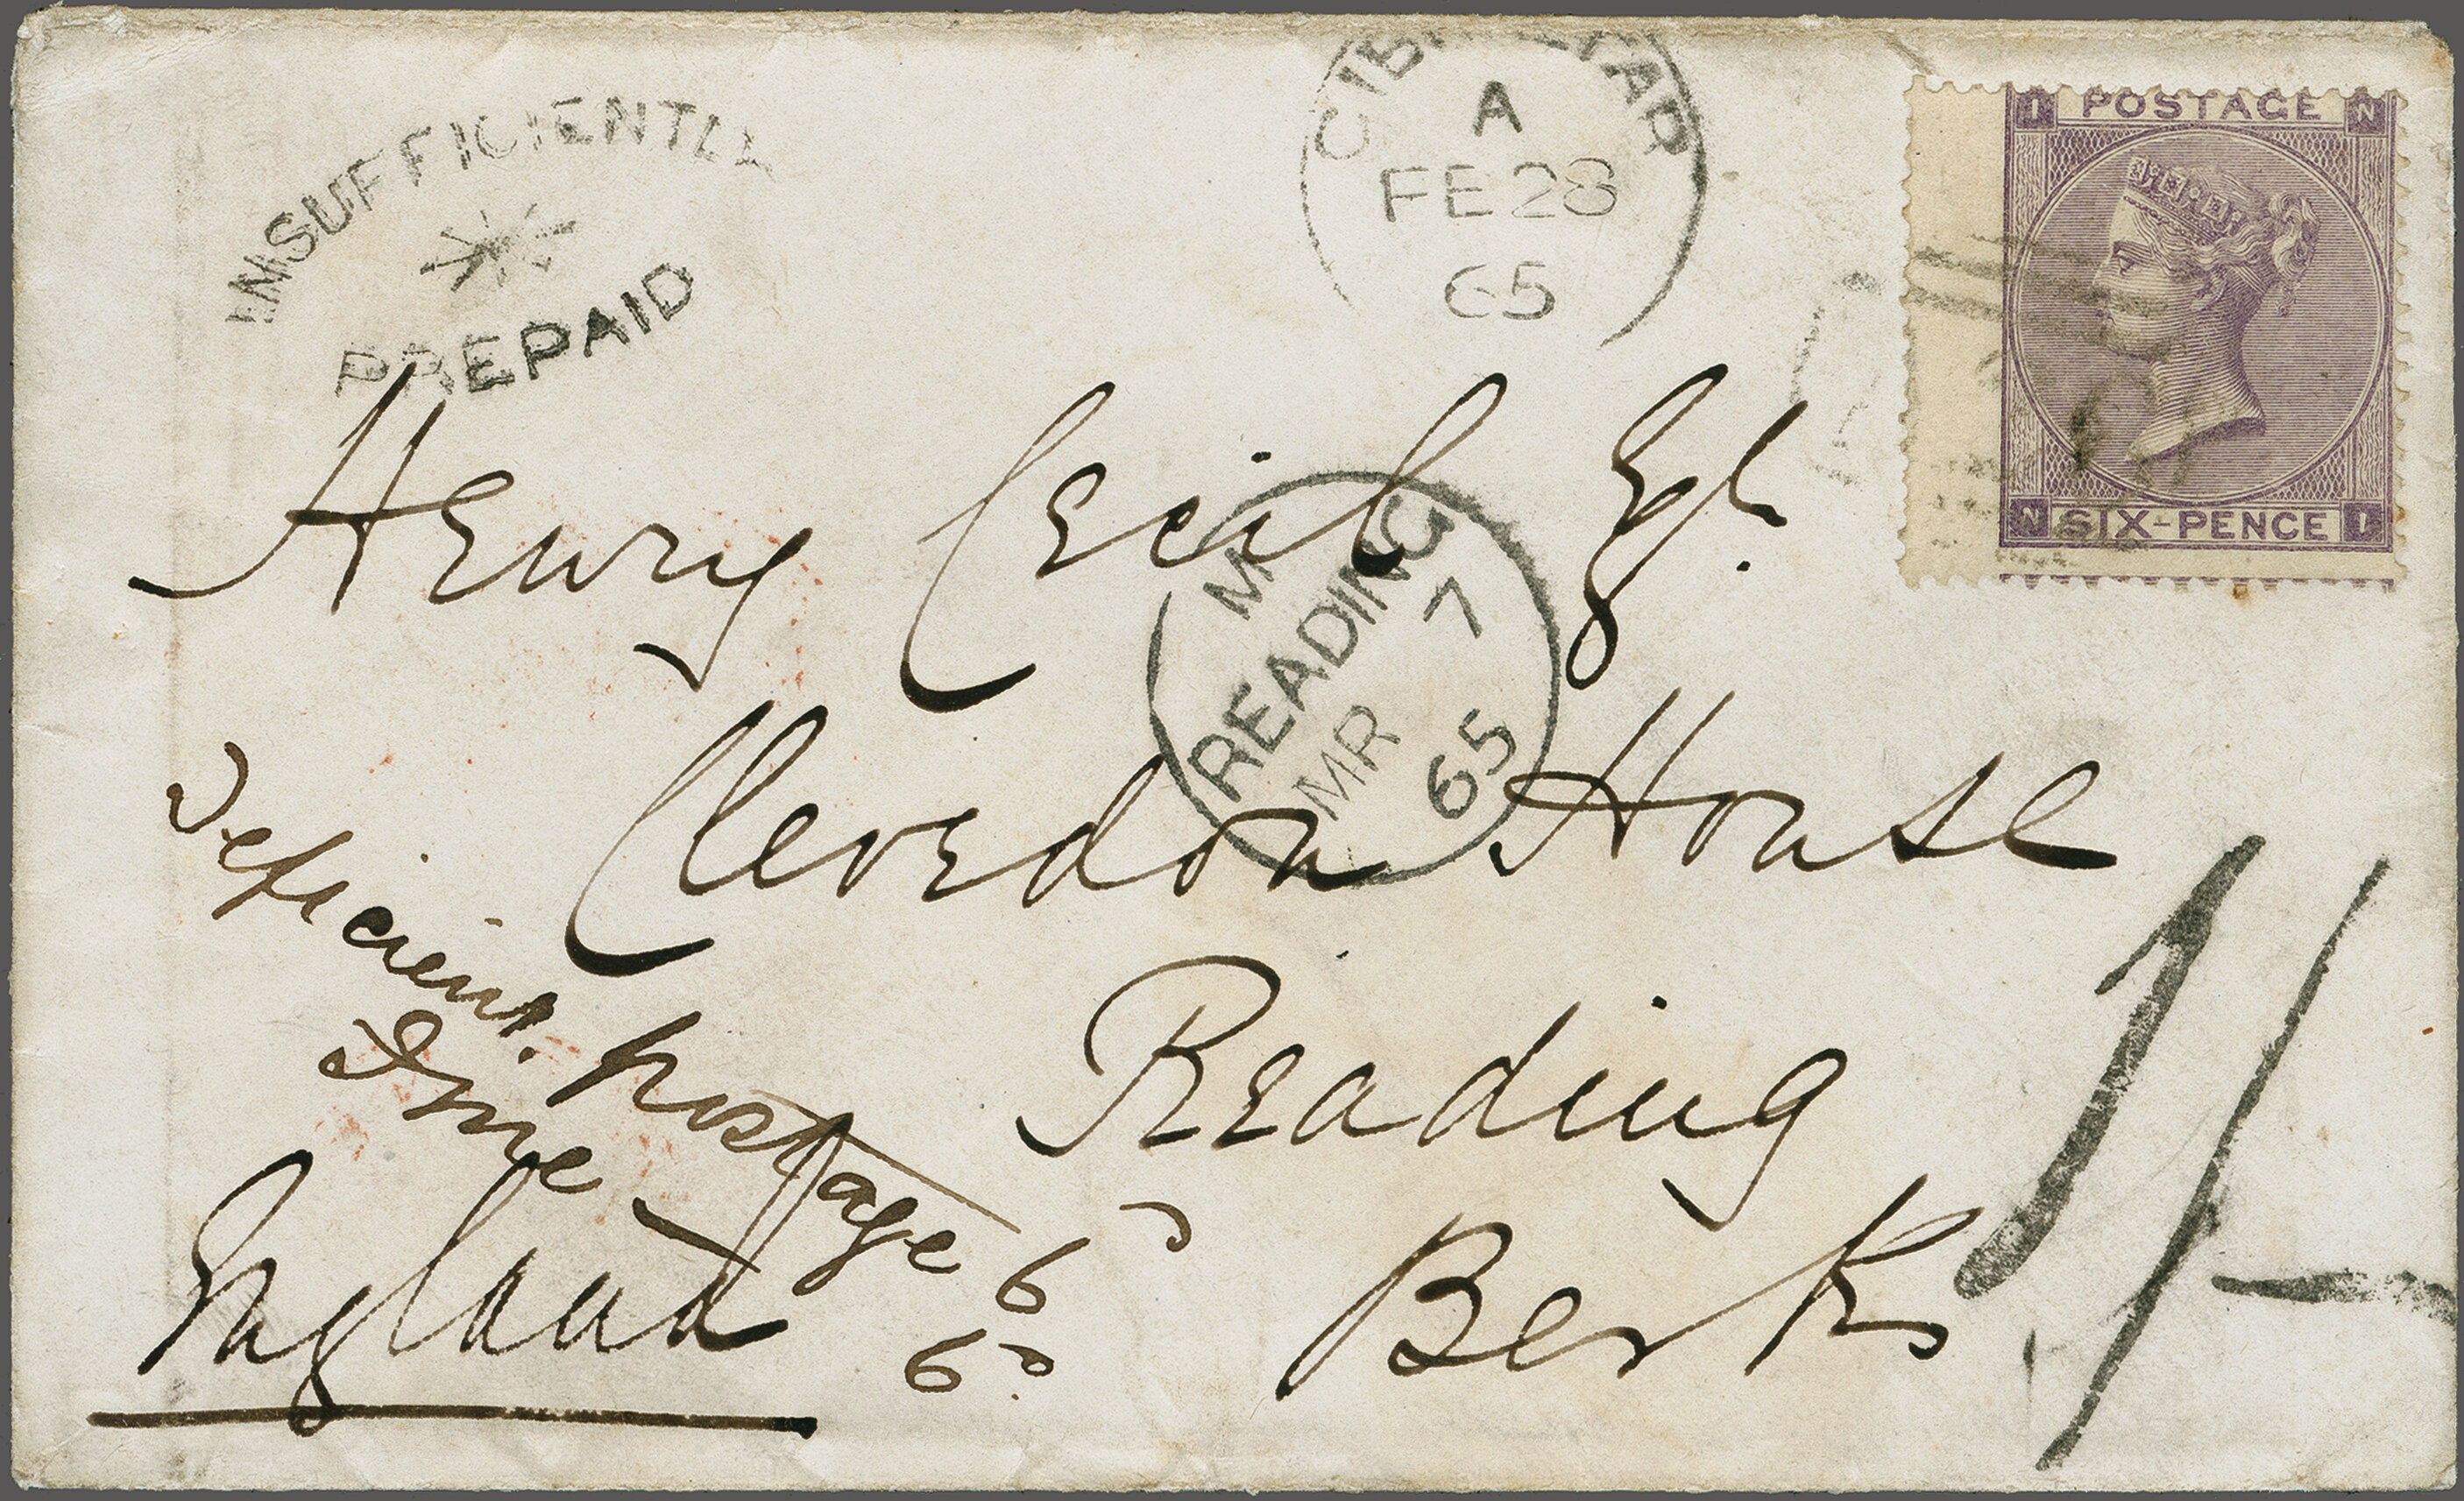 INSUFFICIENTLY
PREPAID
GIBRALTAR
A
FE 28
65
I POSTAGE N
N SIX-PENCE I
Henry Cecil Esqr.
M
READING
MR 7
65
Clevedon House
Reading
Berks
England
Deficient postage 6D
Fine 6D
1/-